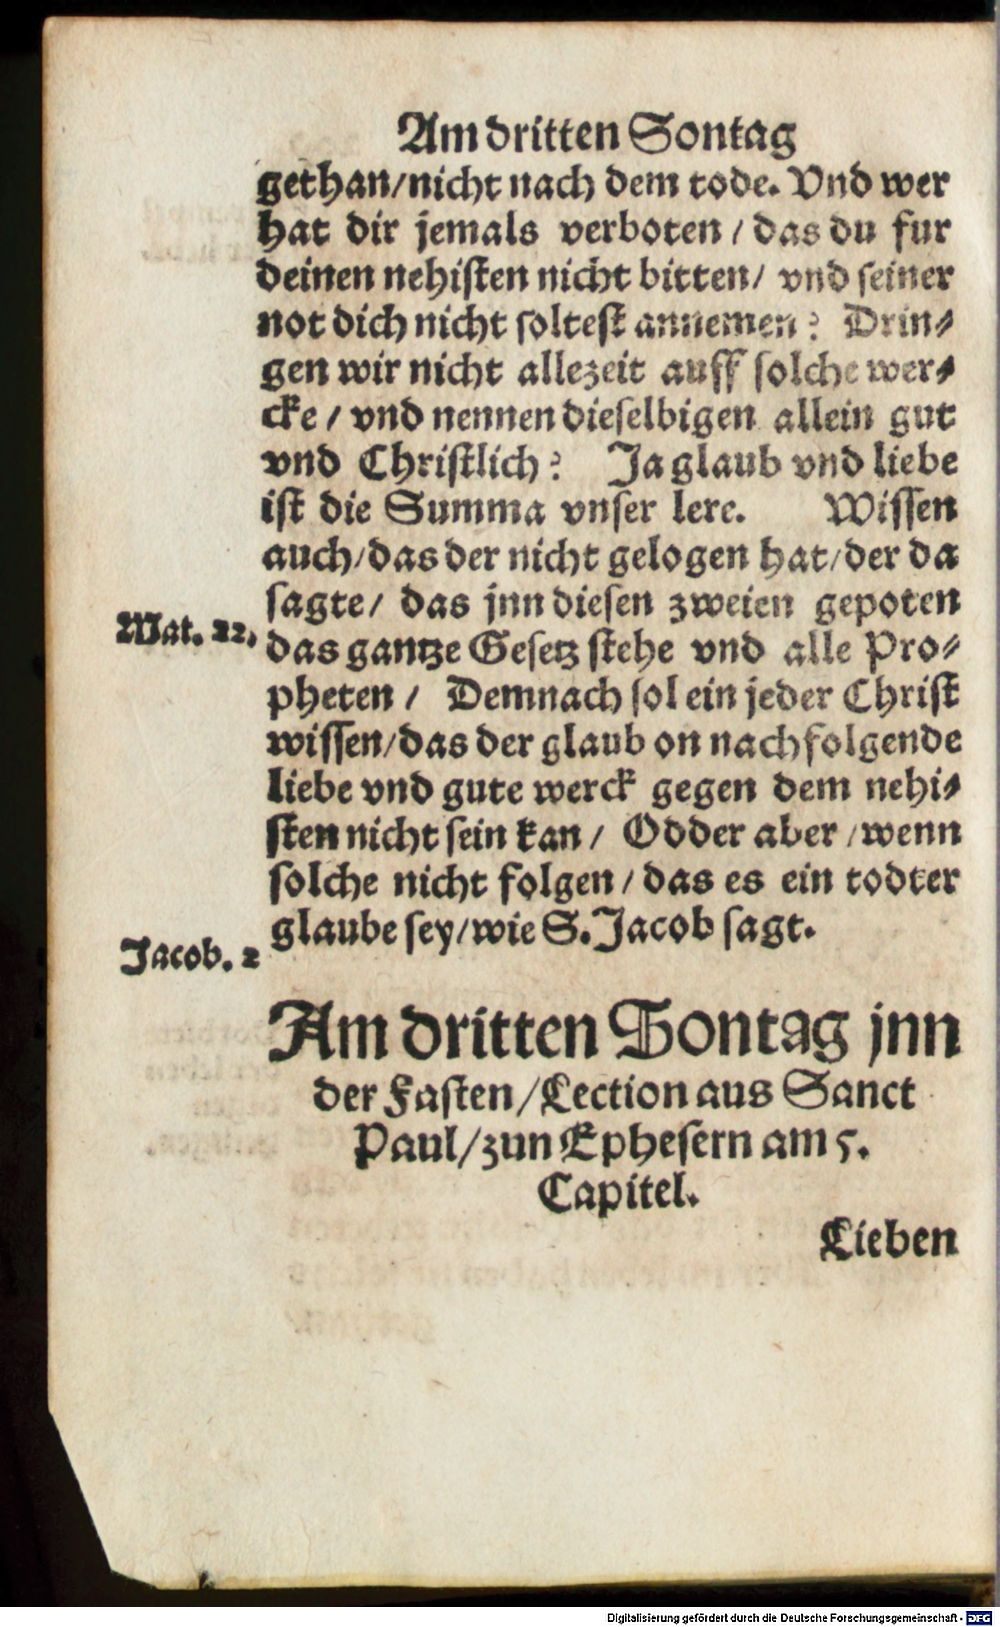 Am dritten Sontag
gethan/nicht nach dem tode. Vnd wer
hat dir jemals verboten / das du fur
deinen nehisten nicht bitten/ vnd seiner
not dich nicht soltest annemen? Drin⸗
gen wir nicht allezeit auff solche wer⸗
cke / vnd nennen dieselbigen allein gut
vnd Christlich? Ja glaub vnd liebe
ist die Summa vnser lere. Wissen
auch/das der nicht gelogen hat/der da
sagte/ das jnn diesen zweien gepoten
Mat. 22.
das gantze Gesetz stehe vnd alle Pro⸗
pheten / Demnach sol ein jeder Christ
wissen/das der glaub on nachfolgende
liebe vnd gute werck gegen dem nehi⸗
sten nicht sein kan / Odder aber /wenn
solche nicht folgen / das es ein todter
glaube sey/wie S. Jacob sagt.
Jacob. 2
Am dritten Sontag jnn
der Fasten/Lection aus Sanct
Paul/zun Ephesern am 5.
Capitel.
Lieben
Digitalisierung gefördert durch die Deutsche Forschungsgemeinschaft - DFG